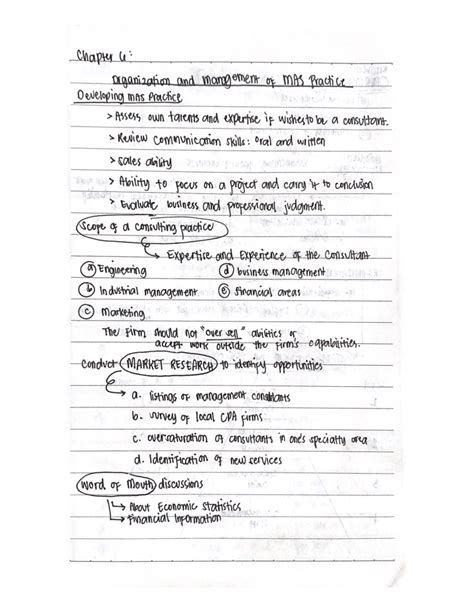 Chapter 6:
Organization and Management of MAS Practice
Developing MAS Practice
> Assess own talents and expertise if wishes to be a consultant.
> Review communication skills: oral and written
> Sales ability
> Ability to focus on a project and carry it to conclusion
> Evaluate business and professional judgment.
Scope of a consulting practice
Expertise and Experience of the Consultant
a Engineering d business management
b Industrial management e financial areas
c Marketing
The firm should not "over sell" abilities or
accept work outside the firm's capabilities.
Conduct MARKET RESEARCH to identify opportunities
a. listings of management consultants
b. survey of local CPA firms
c. oversaturation of consultants in one's specialty area
d. Identification of new services
Word of Mouth discussions
About Economic Statistics
Financial Information